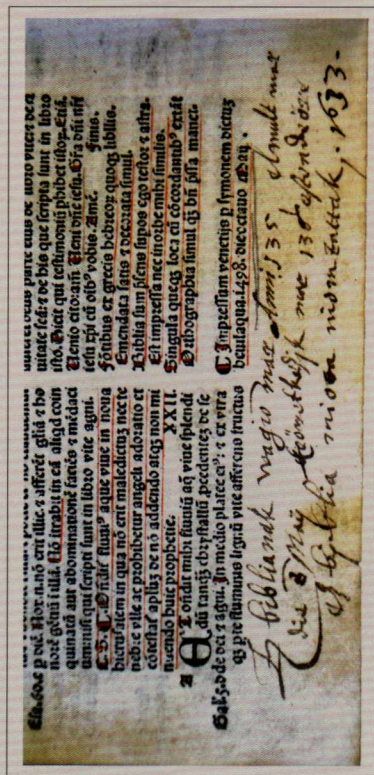 Esa.60.c p oīē. Nox .n.nō erit illic. ⁊ afferēt gliā ⁊ ho
norē gētiū ī illā. Nō ītrabit in eā aliqd coin
quinatū aut abominationē faciēs ⁊ mēdaci
um nisi qui scripti sunt in libro vite agni.
fluuiū aque viue in noua
hierusalem in qua nō erit maledictus nec te
nebre. vite ac prohibetur angeli adoratio et
de nō addendo aeqz nō mi
nuendo huic prophetie. XXII.
A ondit mihi fluuiū aq̄ viue splendi
dū tanq̄ chrystallū pcedentē de se
Gal.5.d de dei ⁊ agni. In medio platee ei⁹: ⁊ ex vtra
qz pte fluminis lignū vite afferens fructus
uitate ⁊ de his que scripta sunt in libro
isto. Dicit qui testimoniū phibet istoꝝ. Etiā.
Uenio cito: amē. Ueni dn̄e iesu. Grā dn̄i nr̄i
iesu xp̄i cū oīb⁹ vobis. Amē. Finis.
Fōtibus ex grecis hebreoꝝ quoqz libris.
Emendata satis ⁊ decorata simul.
Biblia sum p̄sens supos ego testor ⁊ astra.
Est impressa nec in orbe mihi similis.
Singula queqz loca cū cōcordantib⁹ extāt
Orthographia simul q̄ bn̄ p̄ssa manet.
Impressum venetijs p symonem dictuz
beuilaqua. 1498. die octauo Maij.
Ez biblianak mar Anni 135 elmult mar
die 8 Maij mar 136
Ez byblia miota niomtattak. 1633.